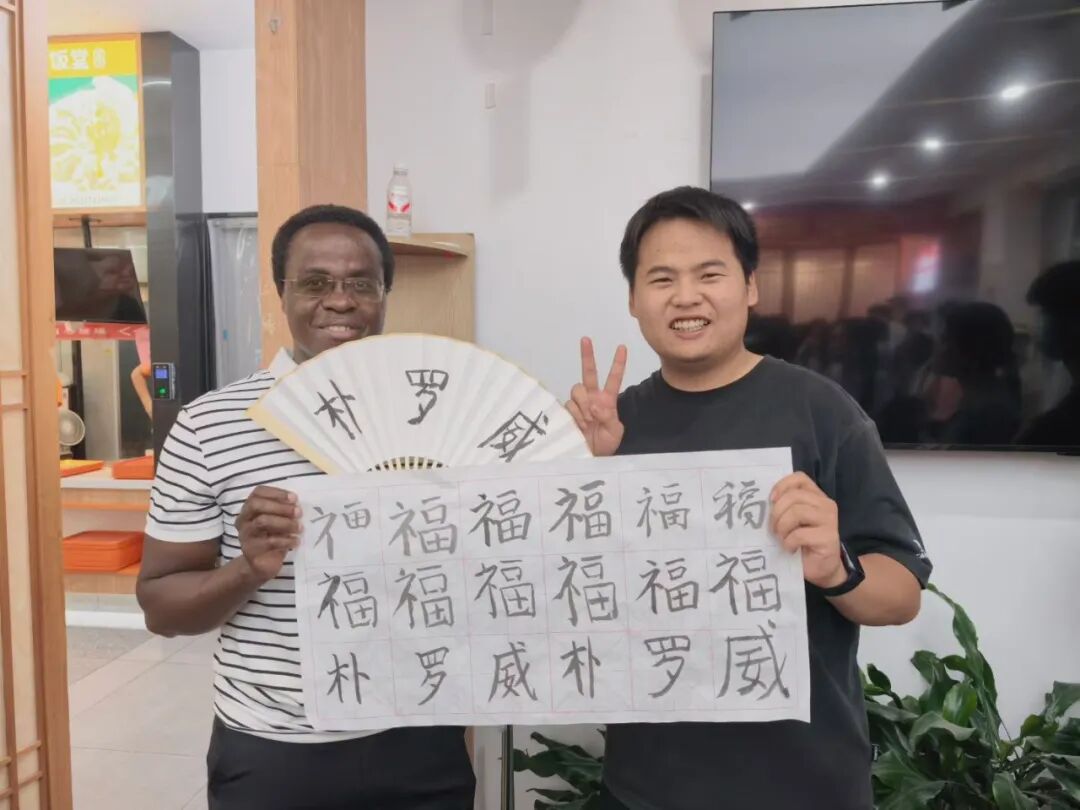 饭堂
朴罗威
礻田福福福福福
福福福福福福
朴罗威朴罗威